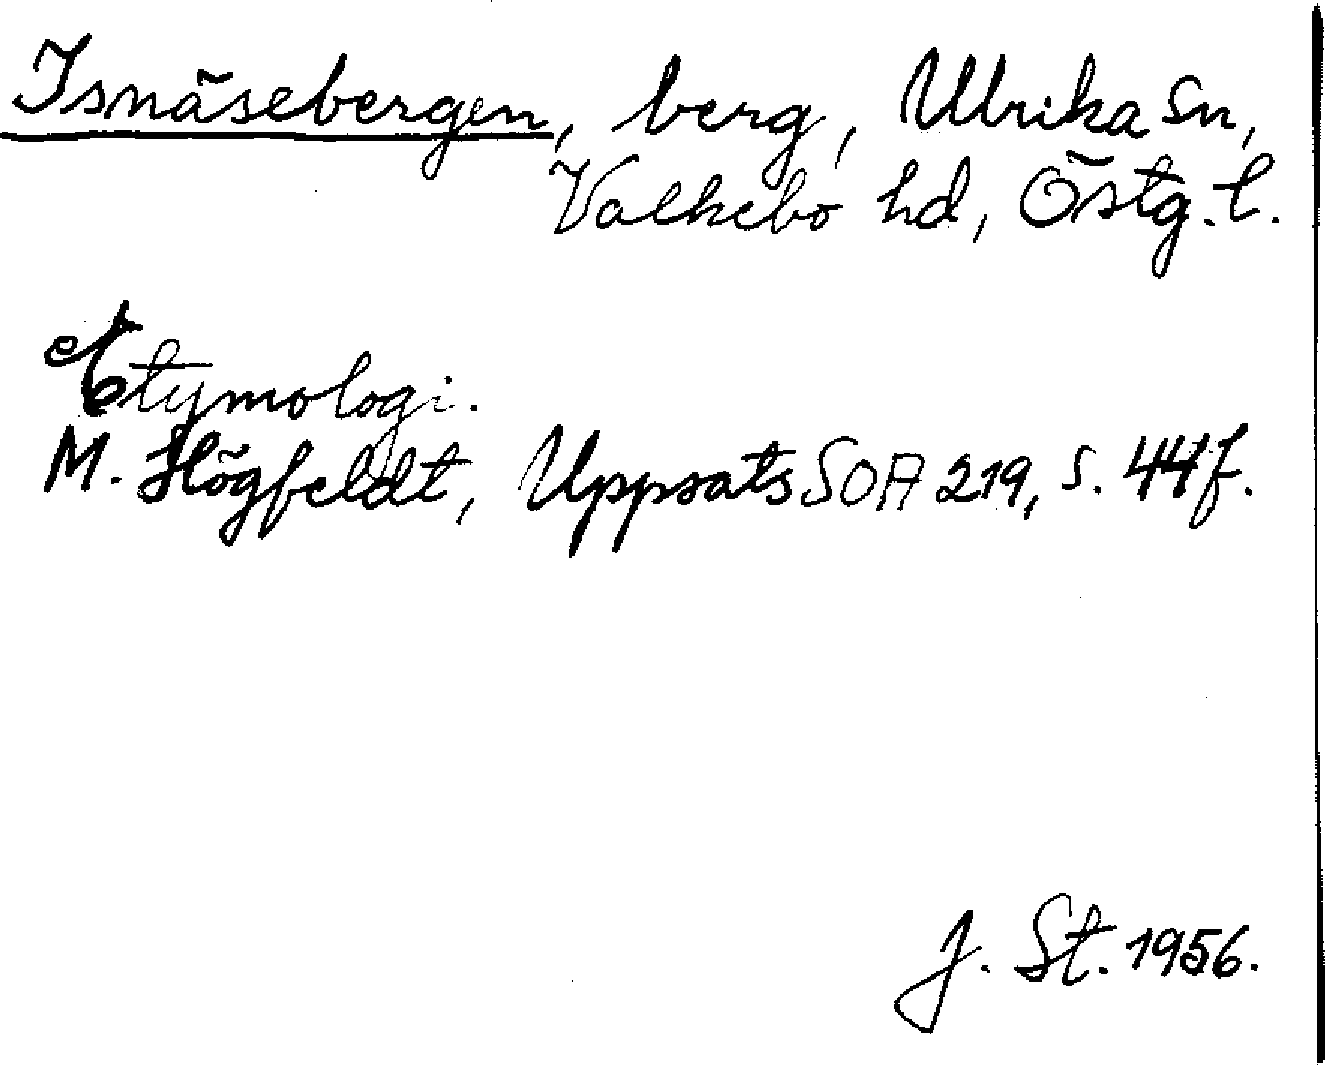 Isnäsebergen, berg, Ulrika sn,
Valkebo hd, Östg. l.
Etymologi.
M. Högfeldt, Uppsats SOA 219, s. 44f.
J. St. 1956.